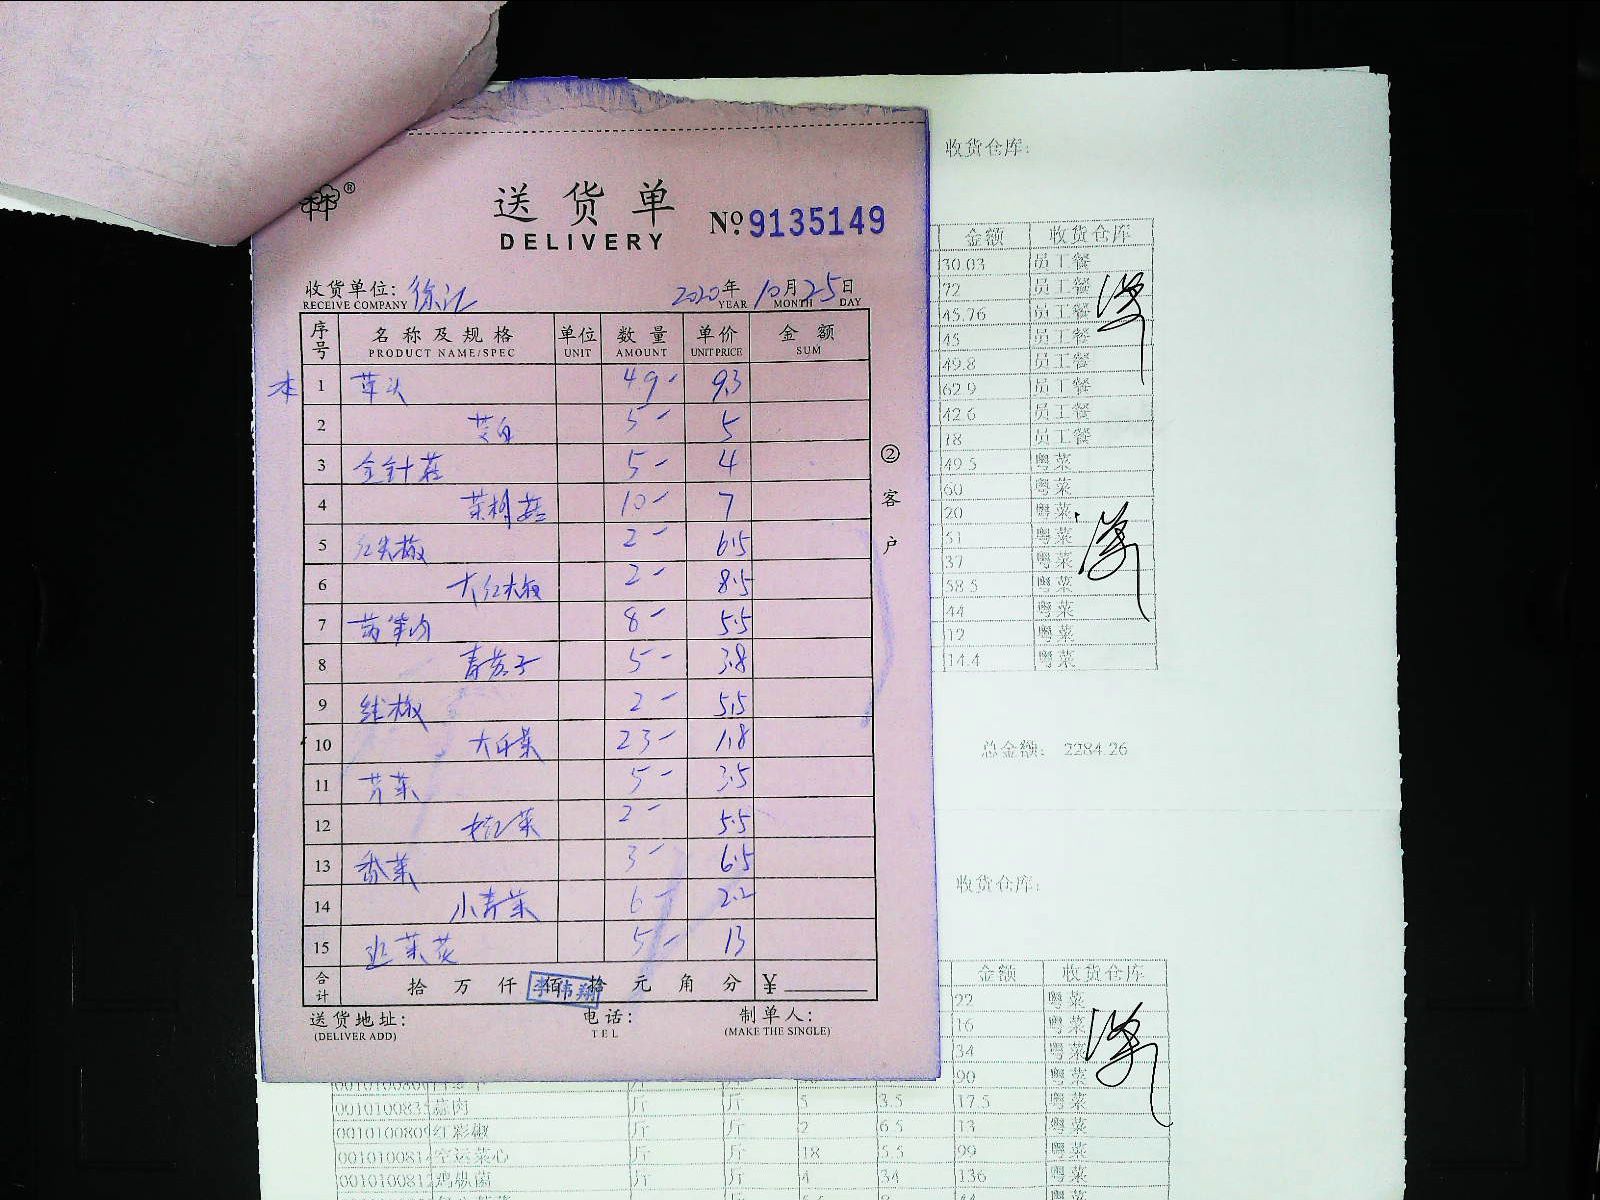 送货单
DELIVERY
No. 9135149
收货单位: 徐汇 2020年10月25日
RECEIVE COMPANY YEAR MONTH DAY
序号 名称及规格 单位 数量 单价 金额
PRODUCT NAME/SPEC UNIT AMOUNT UNIT PRICE SUM
本 1 草头 49- 9.3
2 茭白 5- 5
3 金针菇 5- 4
4 茶树菇 10- 7
5 红尖椒 2- 6.5
6 大红椒 2- 8.5
7 莴笋 8- 5.5
8 5- 3.8
9 2- 5.5
10 23- 1.8
11 芹菜 5- 3.5
12 2- 5.5
13 香菜 3- 6.5
14 小青菜 6- 2.2
15 韭菜花 5- 13
合计 拾 万 仟 佰 拾 元 角 分 ¥
李伟翔
送货地址: 电话: 制单人:
(DELIVER ADD) TEL (MAKE THE SINGLE)
②客户
收货仓库:
金额 收货仓库
30.03 员工餐
72 员工餐
45.76 员工餐
45 员工餐
49.8 员工餐
62.9 员工餐
42.6 员工餐
18 员工餐
49.5 粤菜
60 粤菜
20 粤菜
51 粤菜
37 粤菜
58.5 粤菜
44 粤菜
12 粤菜
14.4 粤菜
总金额: 2284.26
收货仓库:
金额 收货仓库
22 粤菜
16 粤菜
34 粤菜
90 粤菜
蒜肉 斤 斤 5 3.5 17.5 粤菜
红彩椒 斤 斤 2 6.5 13 粤菜
空运菜心 斤 斤 18 5.5 99 粤菜
鸡枞菌 斤 斤 4 34 136 粤菜